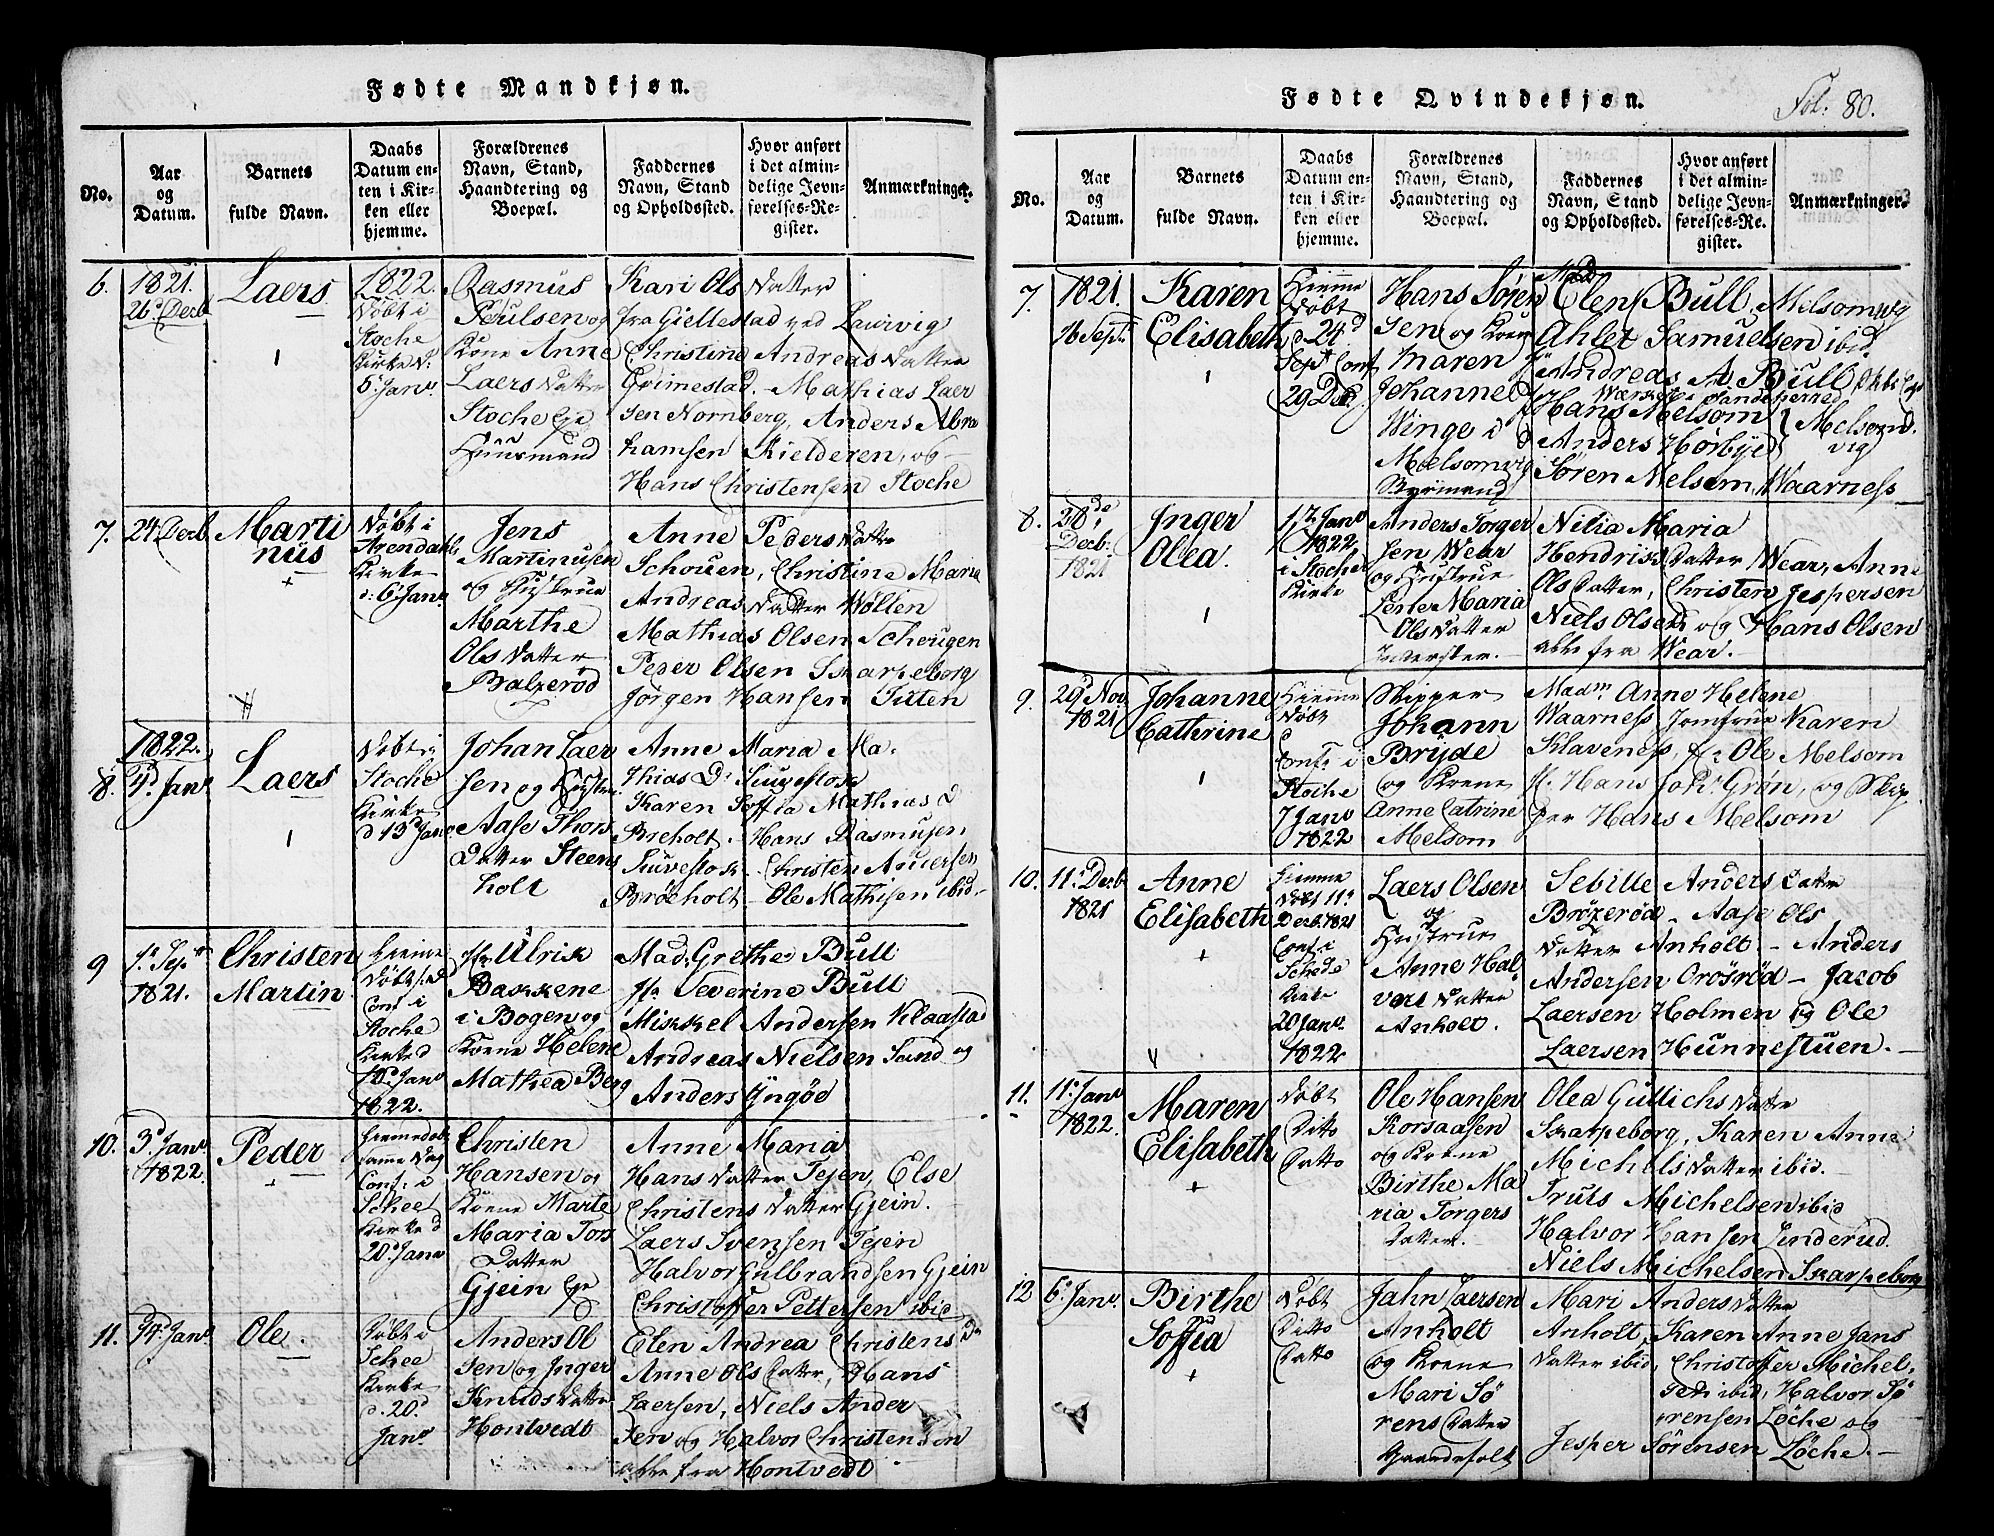 Fødte Mandkjøn.
No.
Aar
og
Datum.
Barnets
fulde Navn.
Daabs
Datum en-
ten i Kir-
ken eller
hjemme.
Forældrenes
Navn, Stand,
Haandtering og
Boepæl.
Faddernes
Navn, Stand
og Opholdssted.
Hvor anført
i det almin-
delige Jevn-
førelses-Re-
gister.
Anmærkninger.
6.
1821.
26d Decb
Laers
1822.
Døbt i
Stoche
Kirke d:
6 Janv.
Rasmus
Poulsen og
Kone Anne
Laers Datter
Stoche Eje
Huusmand
Kari Ols Datter
fra Giellestad ved Laurvig
Christine Andreas Datter
Grimestad. Mathias Laer
sen Nornberg, Anders Abra
hamsen Kielderen, og
Hans Christensen Stoche
7.
24 Decb.
Marti
nus
Døbt i
Arendahls
Kirke
d: 6 Janv.
Jens
Martinusen
og Hustrue
Marthe
Ols Datter
Balzerød
Anne Peders Datter
Schouen, Christine Marie
Andreas Datter Wøllen
Mathias Olsen Schougen
Peder Olsen Skarpeborg
Jørgen Hansen Titten
8.
1822.
4d Janv.
Laers
Døbt i
Stoche
Kirke
d 13d Janv
Johan Laer
sen og Hustru
Aase Thors
Datter Steens
holt
Anne Maria Ma.
thias D: Siuvestok
Karen Soffia Mathias D
Breholt. Hans Rasmusen
Siuvestok Christen Andersen
Brøeholt Ole Mathisen ibid.
9
1821.
Christen
Martin
Hieme
Døbt
Conf i
Stoche
Kirke d
Janv
1822.
Hr Ulrik
Bakkene
i Bogen og
Kone Helene
Mathea Berg
Mad. Grethe Bull
Severine Bull
Mikkel Andersen Klaastad
Andreas Nielsen Sand og
Anders Yngøe
10.
3d Janv
1822.
Peder
Hiemedøb
same Dag
Conf: i
Schee
Kirke d
20d Janv
Christen
Hansen og
Kone Marte
Maria Tors
Datter
Gjein Eje
Anne Maria
Hans Datter Tejen, Else
Christens Datter Gjein.
Laers Svensen Tejein
Halvor Gulbrandsen Gjein
Christoffer Pettersen ibid
11.
14d Janv
Ole.
Døbt i
Schee
Kirke
d. 20d
Janv
Anders Ol
sen og Inger
Knuds Datter
Hontvedt
Elen Andrea Christens D
Anne Ols Datter, Hans
Laersen, Niels Ander
sen og Halvor Christensen
alle fra Hontvedt
Fødte Qvindekjøn.
Fol: 80.
No.
Aar
og
Datum.
Barnets
fulde Navn.
Daabs
Datum en-
ten i Kir-
ken eller
hjemme.
Forældrenes
Navn, Stand,
Haandtering og
Boepæl.
Faddernes
Navn, Stand
og Opholdssted.
Hvor anført
i det almin-
delige Jevn-
førelses-Re-
gister.
Anmærkninger.
7.
1821.
Sept.
Karen
Elisabeth
Hieme
Døbt
d 24d
Sept Conf
29 Dec
Hans Søren
sen og Kone
Maren
Johanne
Winge i
Melsomvig
Mad
Elen Bull, Melsomvig
Ahlet Samuelsen ibid.
Andreas A. Bull
Hans Melsom } Melsom
Anders Hørbye } vig
Søren Melsom, Waarness
8.
28de
Decb:
1821
Inger
Olea.
Janv
1822
i Stoche
Kirke
Anders Torger
sen Wear
og Hustrue
Maria
Ols Datter
Nilia Maria
Hendriks Datter Wear, Anne
Ols Datter, Christen Jespersen
Niels Olsen og Hans Olsen
alle fra Wear.
9.
29d Nov
1821
Johanne
Cathrine
Hieme
Døbt
d
Conf: i
Stoche
7 Janv
1822
Skipper
Johann
Bryde
og Kone
Anne Catrine
Melsom
Madm Anne Helene
Waarness Jomfrue Karen
Klavenes, Hr Ole Melsom
Hr. Hans Joh. Grøn, og Skip
per Hans Melsom
10.
11. Decb
1821
Anne
Elisabeth
Hiemme
Døbt 11.
Decb. 1821
Conf i
Schee
Kirke
20 Janv.
1822
Laers Olsen
og
Hustrue
Anne Hal
vors Datter
Anholt.
Sebille Anders Datter
Brøzerød Aase Ols
Datter Anholt - Anders
Andersen Orosrød - Jacob
Laersen Holmen og Ole
Laersen Hunnestuen.
11.
11. Janv
1822.
Maren
Elisabeth
Døbt
Ditto
Datto
Ole Hansen
Korsaasen
og Kone
Birthe Ma
ria Torgers
Datter.
Olea Gullichs Datter
Skarpeborg, Karen Anne
Michels Datter ibid.
Truls Michelsen ibid
Halvor Hansen Linderud.
Niels Michelsen Skarpeborg
12
6. Janv.
Birthe
Soffia
Døbt
Ditto
Datto
Jahn Laersen
Anholt
og Kone
Mari Sø
rens Datter
Mari Anders Datter
Anholt, Karen Anne Jans
Datter ibid, Christoffer Michel
sen ibid, Halvor Sø
rensen Løche og
Jesper Sørensen Løche.